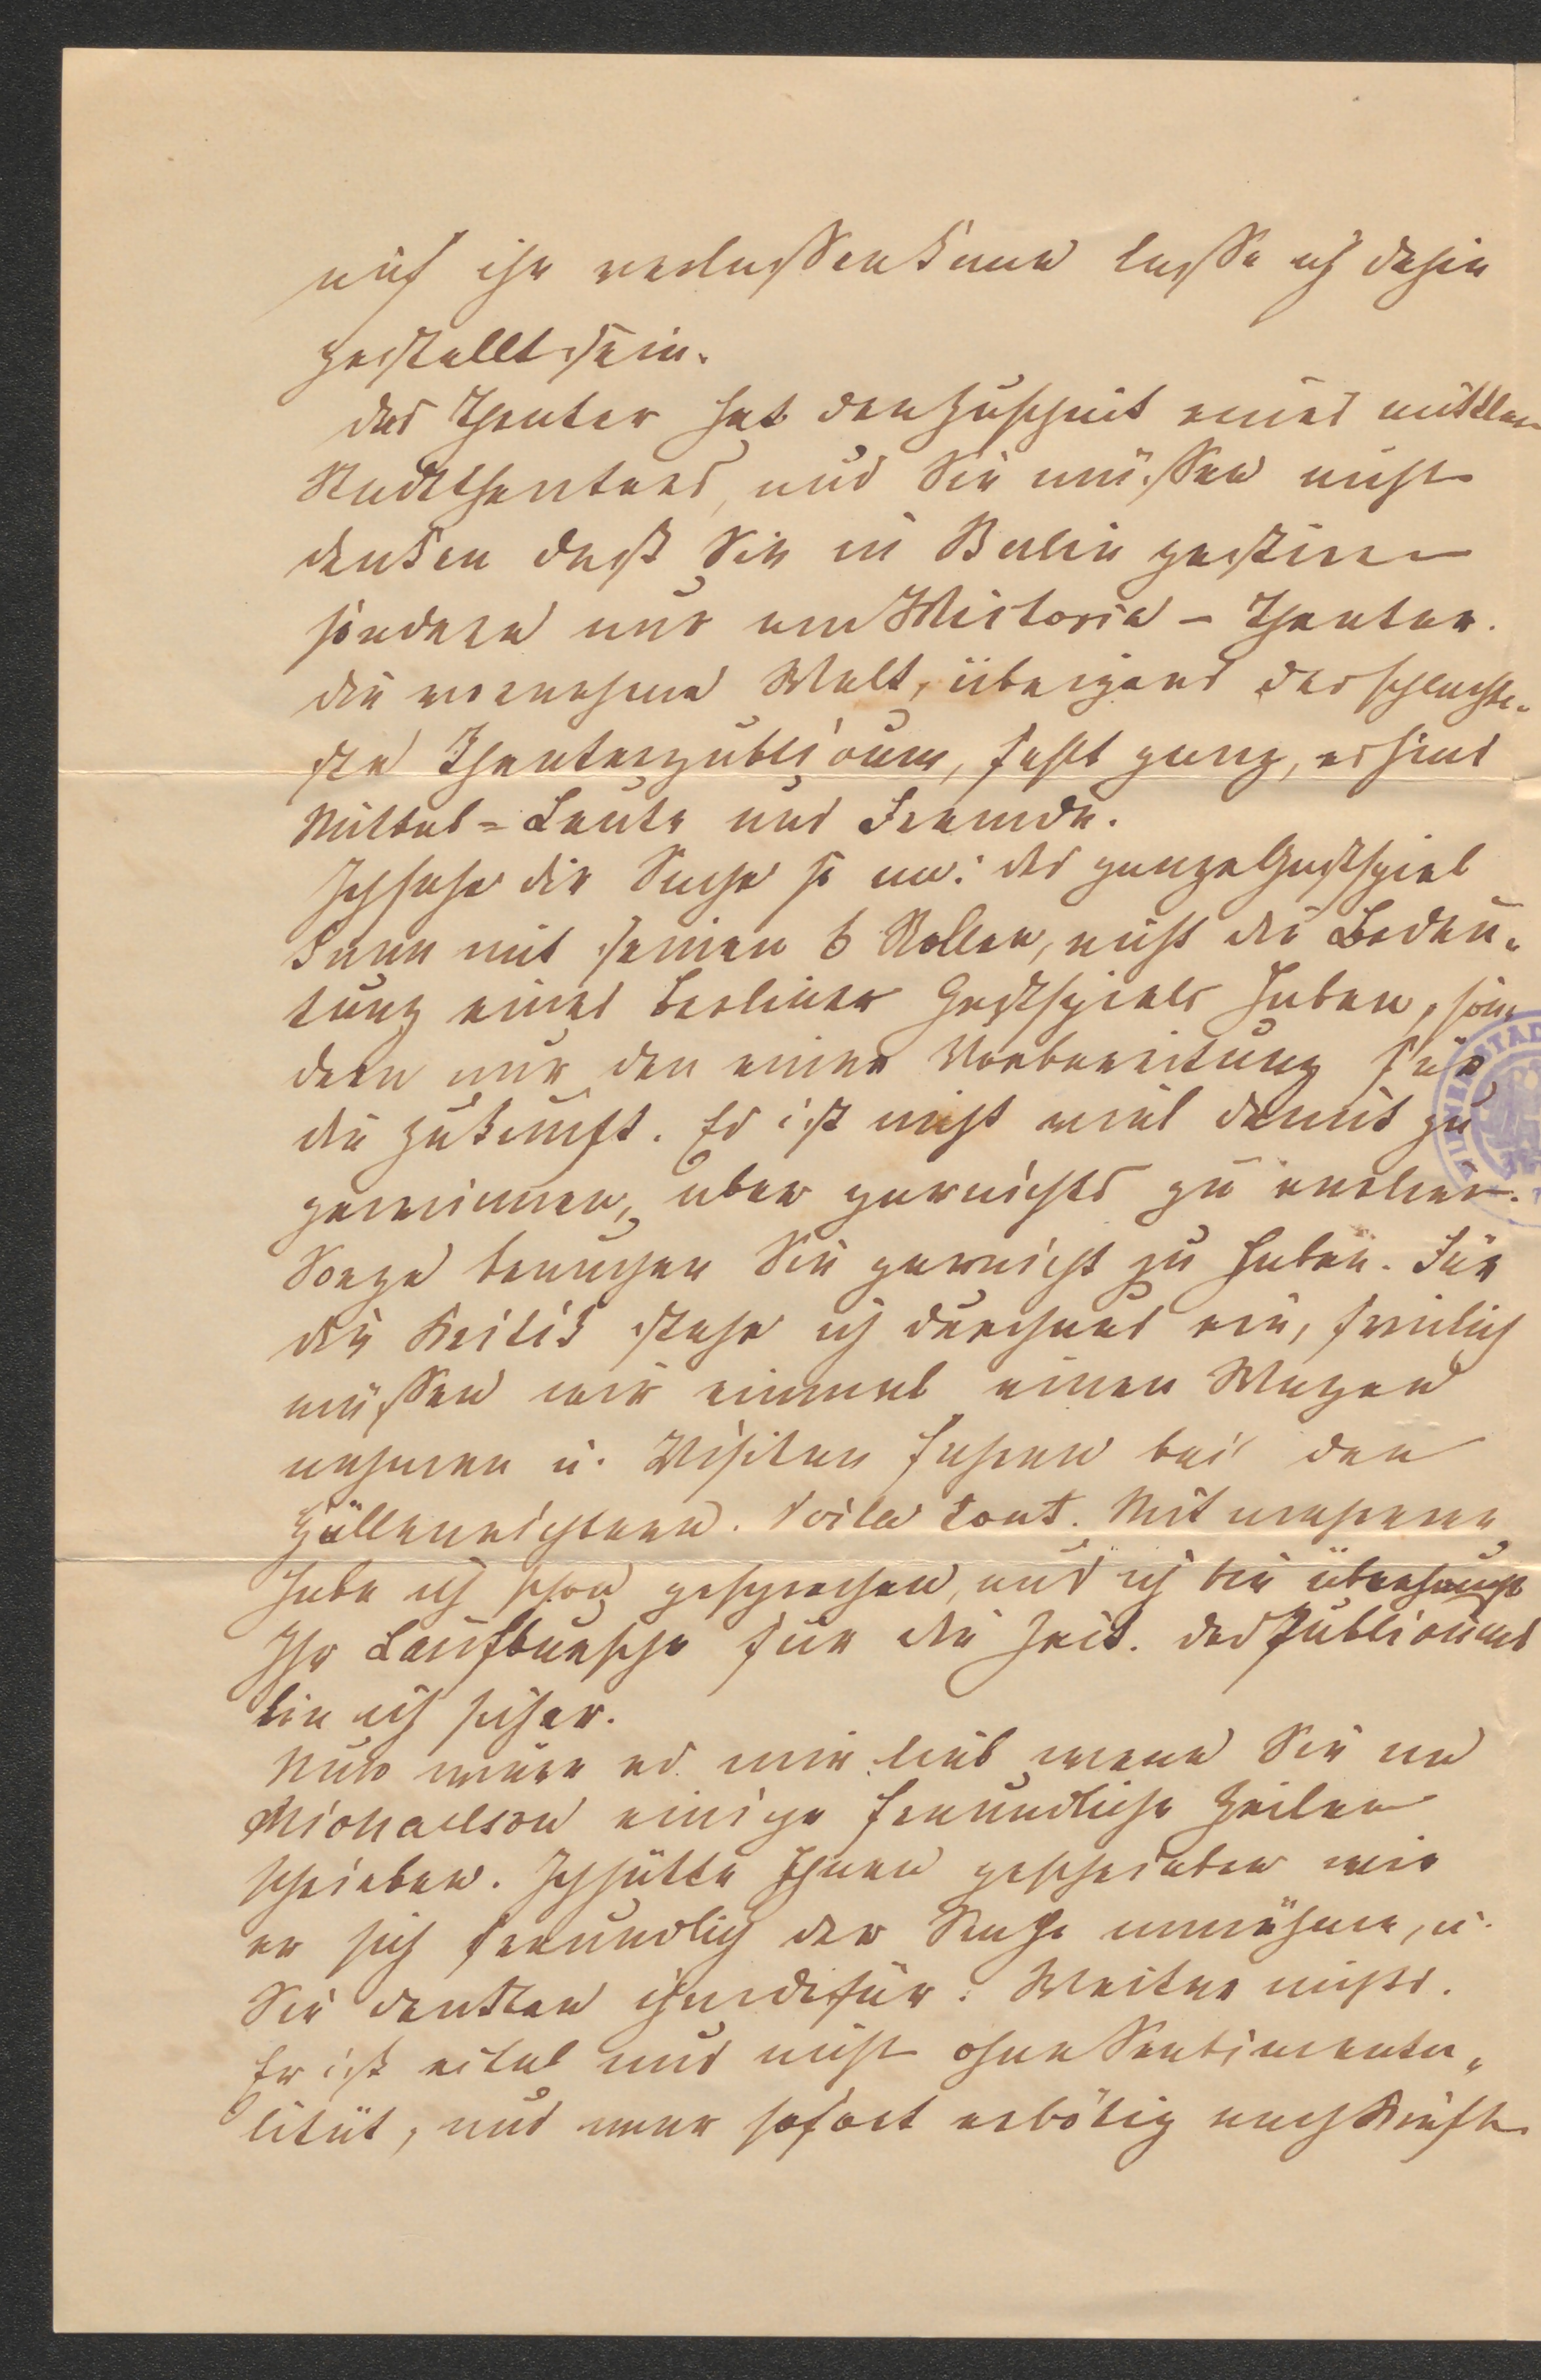 auf ihn verlassen kann lasse ich dahin
gestellt sein.
Das Theater hat den Zuschnitt eines mittleren
Stadttheaters, und Sie müssen nicht
denken daß Sie in Berlin gastiren
sondern nur am Victoria-Theater.
Die vornehme Welt, übrigens das schlechte-
ste Theaterpublicum, fehlt ganz, es sind
Mittel-Leute und Fremde.
Ich sehe die Sache so an: das ganze Gastspiel
kann mit seinen 6 Rollen, nicht die Bedeu-
tung eines Berliner Gastspiels haben, son-
dern nur den einer Vorbereitung für
die Zukunft. Es ist nicht viel damit zu
gewinnen, aber garnichts zu verlieren.
Sorge brauchen Sie garnicht zu haben. Für
die Kritik stehe ich durchaus ein, freilich
müssen wir einmal einen Wagen
nehmen u. Visiten fahren bei den
Höllenrichtern. Voila tout. Mit mehreren
habe ich schon gesprochen, und ich bin überhaupt
Ihr Laufbursche für die Zeit. Des Publicums
bin ich sicher.
Nun wäre es mir lieb wenn Sie an
Michaelson einige freundliche Zeilen
schrieben. Ich hätte Ihnen geschrieben wie
er sich freundlich der Sache annähme, u.
Sie dankten ihm dafür. Weiter nichts.
Er ist eitel und nicht ohne Sentimenta-
lität, und war sofort erbötig nach Kräften